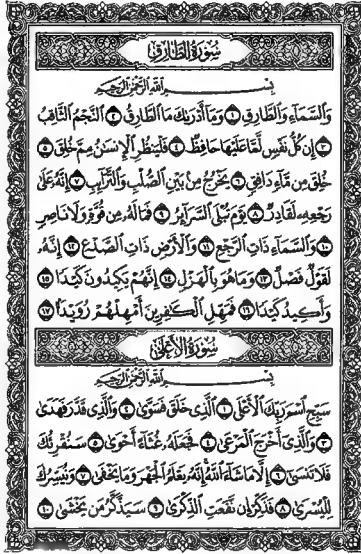 سُورَةُ الطَّارِقِ
بِسْمِ اللَّهِ الرَّحْمَٰنِ الرَّحِيمِ
وَالسَّمَآءِ وَالطَّارِقِ ١ وَمَآ أَدْرَىٰكَ مَا الطَّارِقُ ٢ النَّجْمُ الثَّاقِبُ
٣ إِن كُلُّ نَفْسٍ لَّمَّا عَلَيْهَا حَافِظٌ ٤ فَلْيَنظُرِ الْإِنسَٰنُ مِمَّ خُلِقَ ٥
خُلِقَ مِن مَّآءٍ دَافِقٍ ٦ يَخْرُجُ مِنۢ بَيْنِ الصُّلْبِ وَالتَّرَآئِبِ ٧ إِنَّهُۥ عَلَىٰ
رَجْعِهِۦ لَقَادِرٌ ٨ يَوْمَ تُبْلَى السَّرَآئِرُ ٩ فَمَا لَهُۥ مِن قُوَّةٍ وَلَا نَاصِرٍ
١٠ وَالسَّمَآءِ ذَاتِ الرَّجْعِ ١١ وَالْأَرْضِ ذَاتِ الصَّدْعِ ١٢ إِنَّهُۥ
لَقَوْلٌ فَصْلٌ ١٣ وَمَا هُوَ بِالْهَزْلِ ١٤ إِنَّهُمْ يَكِيدُونَ كَيْدًا ١٥
وَأَكِيدُ كَيْدًا ١٦ فَمَهِّلِ الْكَٰفِرِينَ أَمْهِلْهُمْ رُوَيْدًۢا ١٧
سُورَةُ الْأَعْلَىٰ
بِسْمِ اللَّهِ الرَّحْمَٰنِ الرَّحِيمِ
سَبِّحِ اسْمَ رَبِّكَ الْأَعْلَى ١ الَّذِى خَلَقَ فَسَوَّىٰ ٢ وَالَّذِى قَدَّرَ فَهَدَىٰ
٣ وَالَّذِىٓ أَخْرَجَ الْمَرْعَىٰ ٤ فَجَعَلَهُۥ غُثَآءً أَحْوَىٰ ٥ سَنُقْرِئُكَ
فَلَا تَنسَىٰٓ ٦ إِلَّا مَا شَآءَ اللَّهُ إِنَّهُۥ يَعْلَمُ الْجَهْرَ وَمَا يَخْفَىٰ ٧ وَنُيَسِّرُكَ
لِلْيُسْرَىٰ ٨ فَذَكِّرْ إِن نَّفَعَتِ الذِّكْرَىٰ ٩ سَيَذَّكَّرُ مَن يَخْشَىٰ ١٠